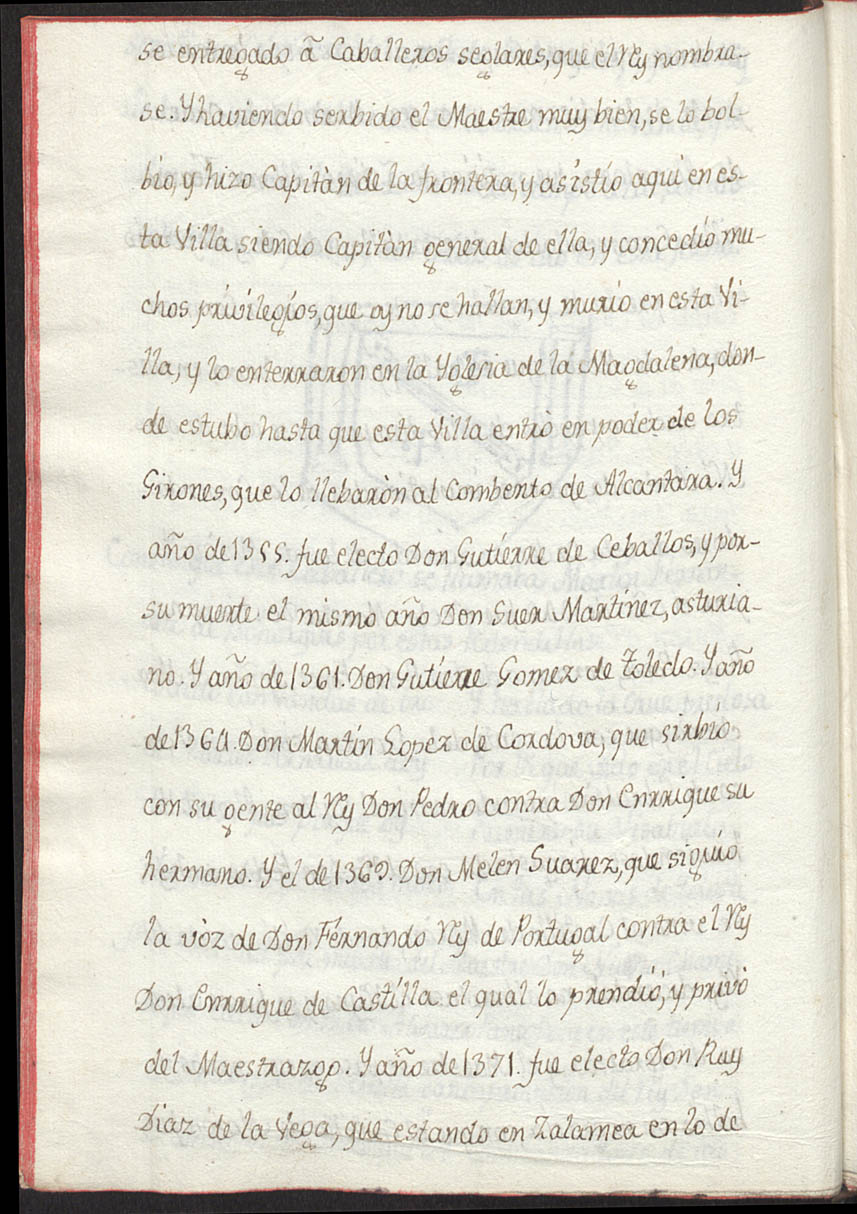 se entregado â Caballeros seglares, que el Rey nombra-
se. Y haviendo serbido el Maestre muy bien, se lo bol-
bio, y hizo Capitàn de la frontera, y asistío aqui en es-
ta Villa siendo Capitàn general de ella, y concedío mu-
chos privilegíos, que oy no se hallan, y murío en esta Vi-
lla, y lo enterraron en la Yglesia de la Magdalena, don-
de estubo hasta que esta Villa entrò en poder de los
Girones, que lo llebaròn al Combento de Alcantara. Y
año de 1355. fue electo Don Gutíerre de Ceballos, y por-
su muerte el mismo año Don Suer Martínez, asturia-
no. Y año de 1361. Don Gutíerre Gomez de Toledo. Y año
de 1364. Don Martín Lopez de Cordova, que sirbío
con su gente al Rey Don Pedro contra Don Enrrique su
hermano. Y el de 1369. Don Melen Suarez, que siguío
la vòz de Don Férnando Rey de Portugal contra el Rey
Don Enrrique de Castílla el qual lo prendíó, y privò
del Maestrazgo. Y año de 1371. fue electo Don Ruy
Diaz de la Vega, que estando en Zalamea en lo de